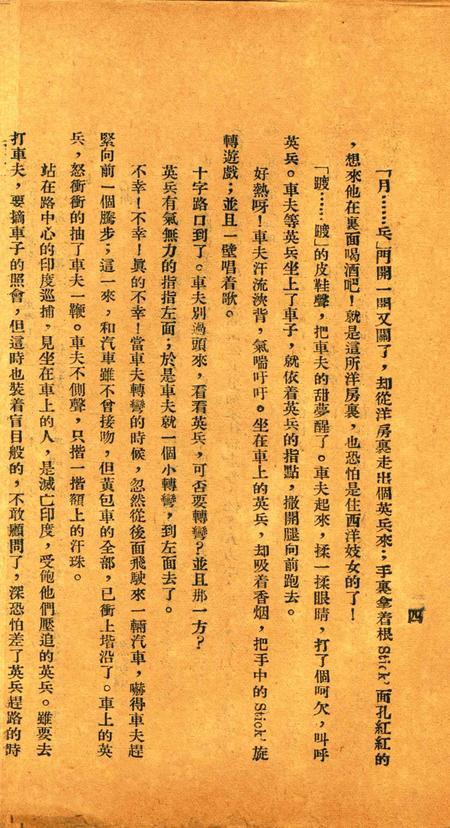 四
「月……兵」門開一開又關了，却從洋房裏走出個英兵來；手裏拿着根Stick'面孔紅紅的
，想來他在裏面喝酒吧！就是這所洋房裏，也恐怕是住西洋妓女的了！
「踱……踱」的皮鞋聲，把車夫的甜夢醒了。車夫起來，揉一揉眼睛，打了個呵欠，叫呼
英兵。車夫等英兵坐上了車子，就依着英兵的指點，撒開腿向前跑去。
好熱呀！車夫汗流浹背，氣喘吁吁。坐在車上的英兵，却吸着香烟，把手中的Stick'旋
轉遊戲；並且一壁唱着歌。
十字路口到了。車夫別過頭來，看看英兵，可否要轉彎？並且那一方？
英兵有氣無力的指指左面；於是車夫就一個小轉彎，到左面去了。
不幸！不幸！眞的不幸！當車夫轉彎的時候，忽然從後面飛駛來一輛汽車，嚇得車夫趕
緊向前一個騰步；這一來，和汽車雖不曾接吻，但黃包車的全部，已衝上堦沿了。車上的英
兵，怒衝衝的抽了車夫一鞭。車夫不側聲，只揩一揩額上的汗珠。
站在路中心的印度巡捕，見坐在車上的人，是滅亡印度，受飽他們壓迫的英兵。雖要去
打車夫，要摘車子的照會，但這時也裝着盲目般的，不敢顧問了，深恐怕差了英兵趕路的時